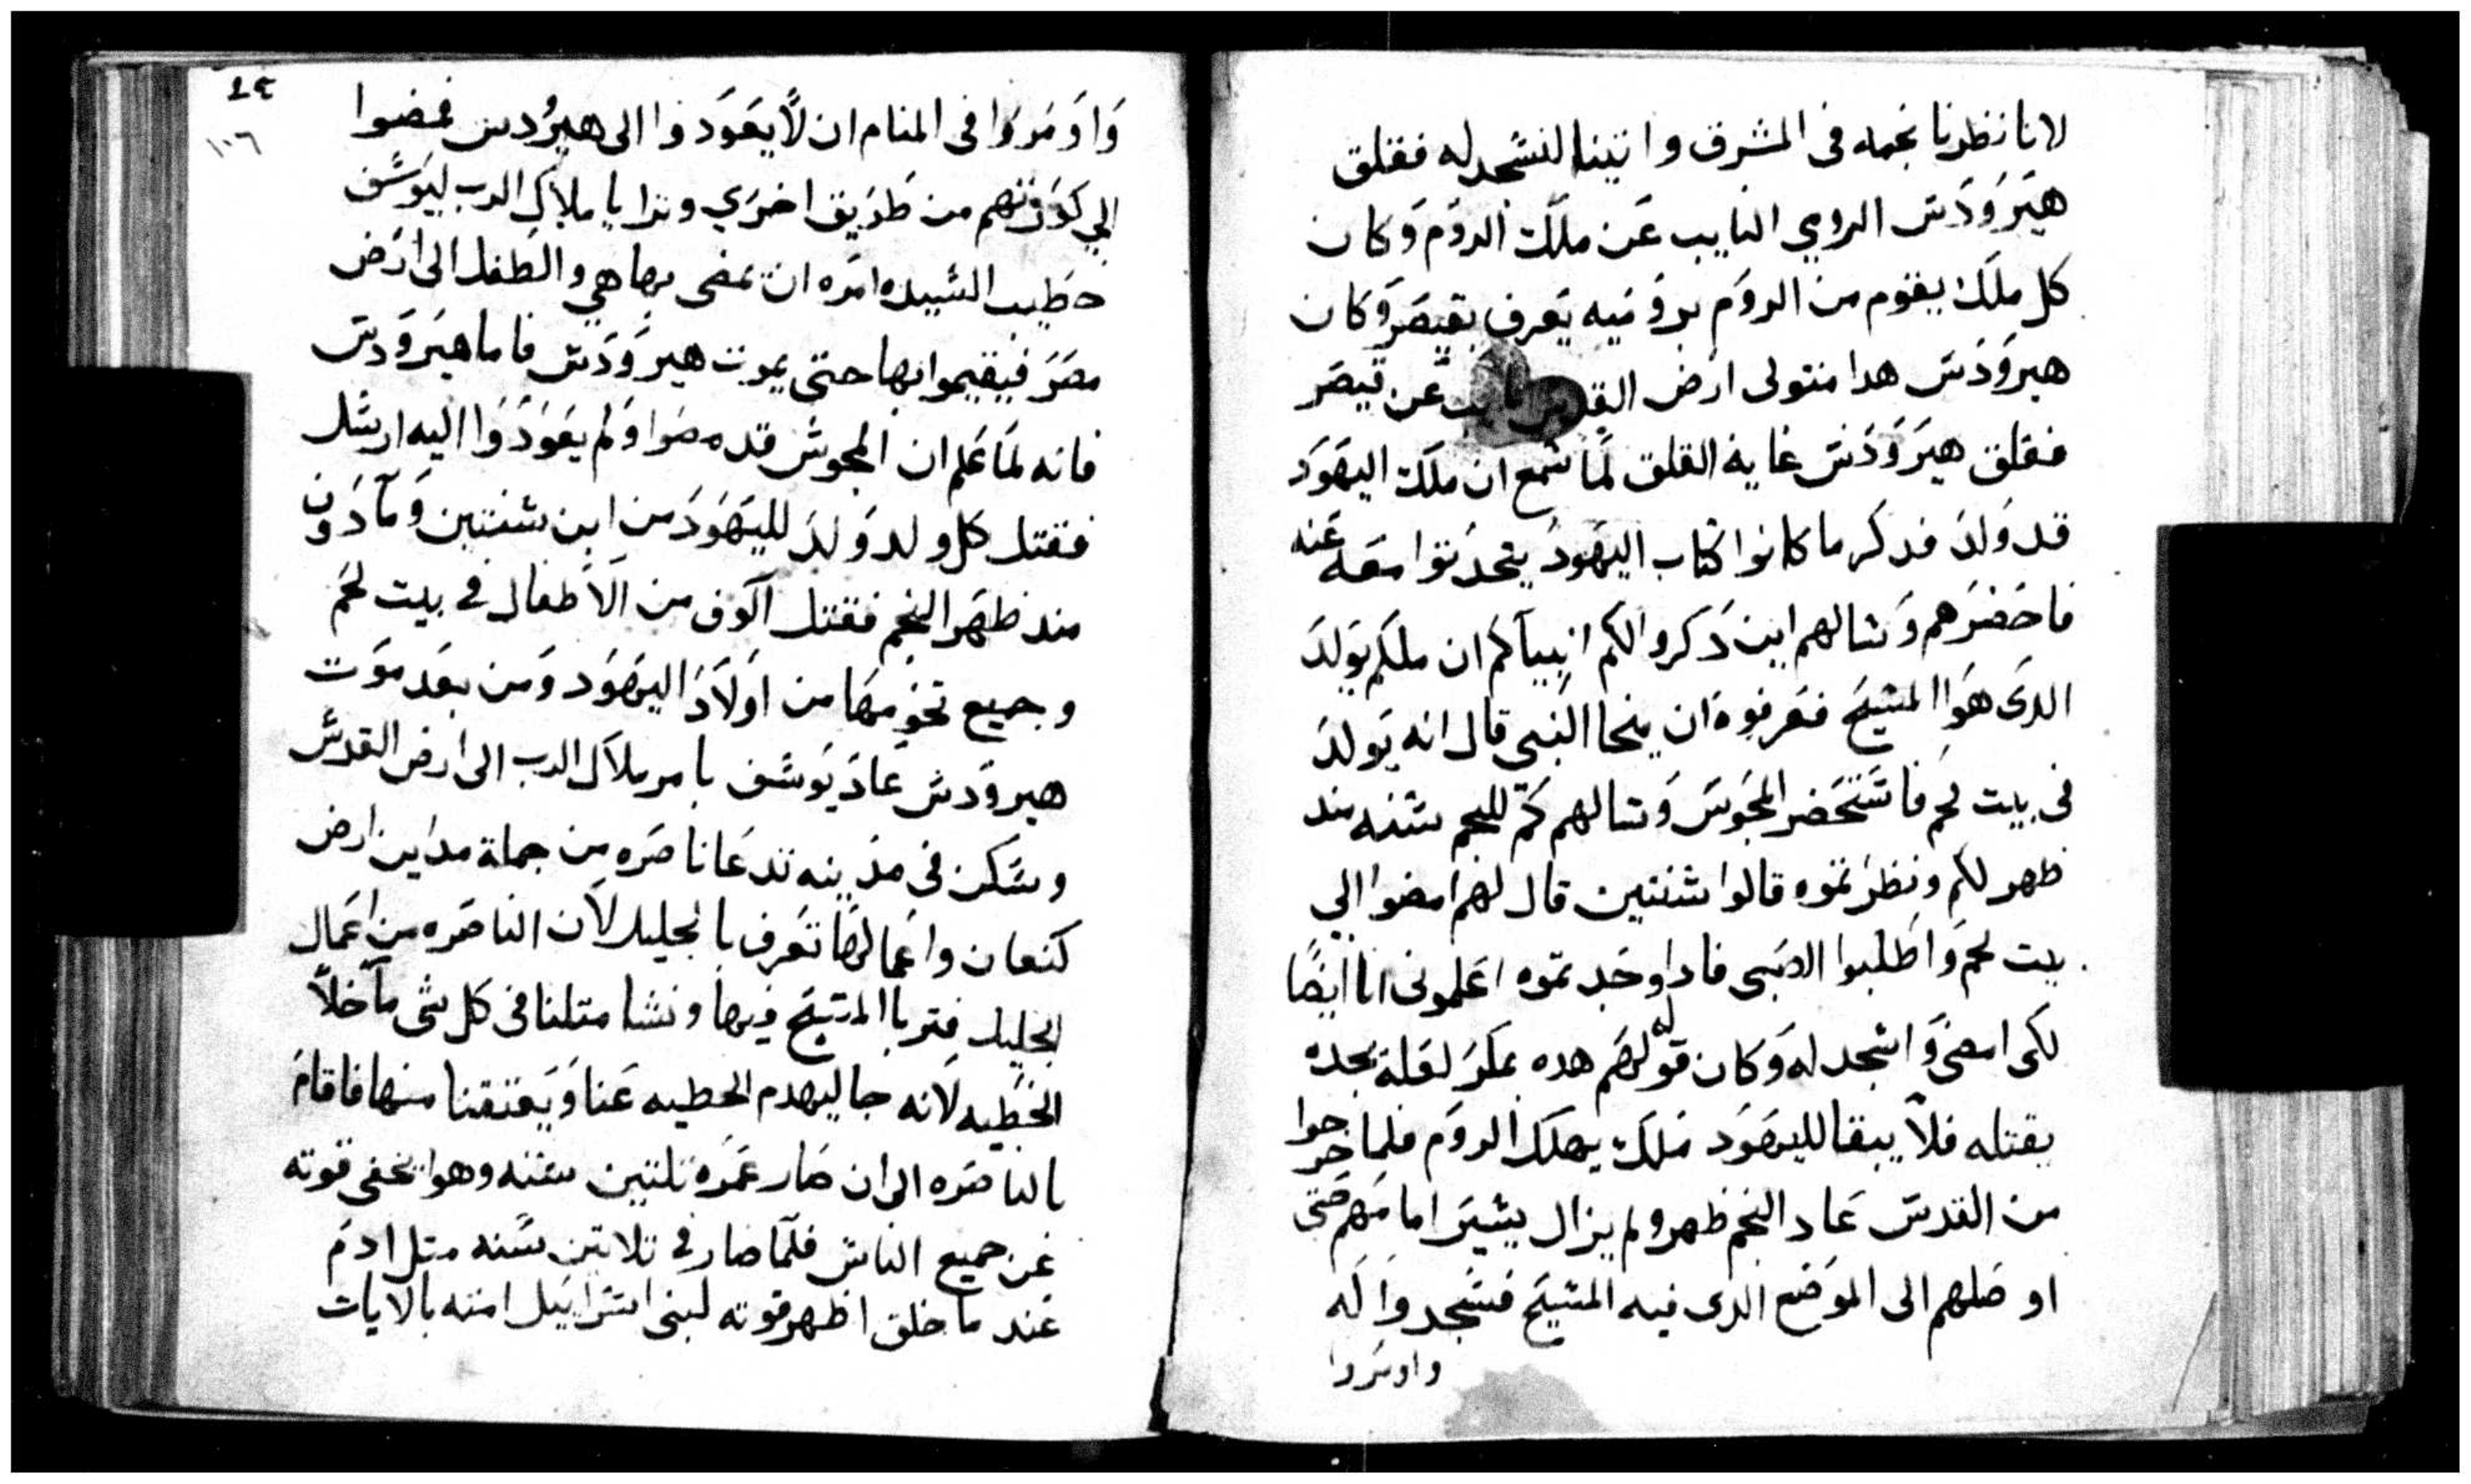 لانا نظرنا نجمه فى المشرق واتينا لنسجد له فقلق
هيرودس الرومي النايب عن ملك الروم وكان
كل ملك يقوم من الروم برومية يعرف بقيصر وكان
هيرودس هدا متولى ارض القدس نايب عن قيصر
فقلق هيرودس غاية القلق لما سمع ان ملك اليهود
قد ولد فدكر ما كانوا كتاب اليهود يتحدتوا معه عنه
فاحضرهم وسالهم اين دكروا لكم انبيآكم ان ملكم يولد
الدى هوا المسيح فعرفوه ان ميخا النبى قال انه يولد
فى بيت لحم فاستحضر المجوس وسالهم كم للنجم سنه مند
ظهر لكم ونظرتموه قالوا سنتين قال لهم امضوا الي
بيت لحم واطلبوا الصبى فادا وجدتموه اعلمونى انا ايضا
لكى امضى واسجد له وكان قوله لهم هده بمكر لعلة يجده
يقتله فلا يبقا لليهود ملك يهلك الروم فلما خرجوا
من القدس عاد النجم ظهر ولم يزال يسير امامهم حتى
اوصلهم الى الموضع الدى فيه المسيح فسجدوا له
واومروا
١٤
١٠٦
واومروا فى المنام ان لا يعودوا الى هيرودس فمضوا
الي كورتهم من طريق اخرى وترايا ملاك الرب ليوسف
خطيب السيده امره ان يمضى بها هي والطفل الى ارض
مصر فيقيموا بها حتى يموت هيرودس فاما هيرودس
فانه لما علم ان المجوس قد مضوا ولم يعودوا اليه ارسل
فقتل كل ولد ولد لليهود من ابن سنتين وما دون
مند ظهر النجم فقتل آلوف من الاطفال في بيت لحم
وجميع تخومها من اولاد اليهود ومن بعد موت
هيرودس عاد يوسف بامر ملاك الرب الى ارض القدس
وسكن فى مدينه تدعا ناصره من جملة مداين ارض
كنعان واعمالها تعرف بالجليل لان الناصره من اعمال
الجليل فتربا المسيح فيها ونشا متلنا فى كل شى ما خلا
الخطيه لانه جا ليهدم الخطيه عنا ويعتقنا منها فاقام
بالناصره الى ان صار عمره تلتين سنه وهوا يخفى قوته
عن جميع الناس فلما صار في تلاتين سنه متل ادم
عند ما خلق اظهر قوته لبنى اسراييل امته بالايات